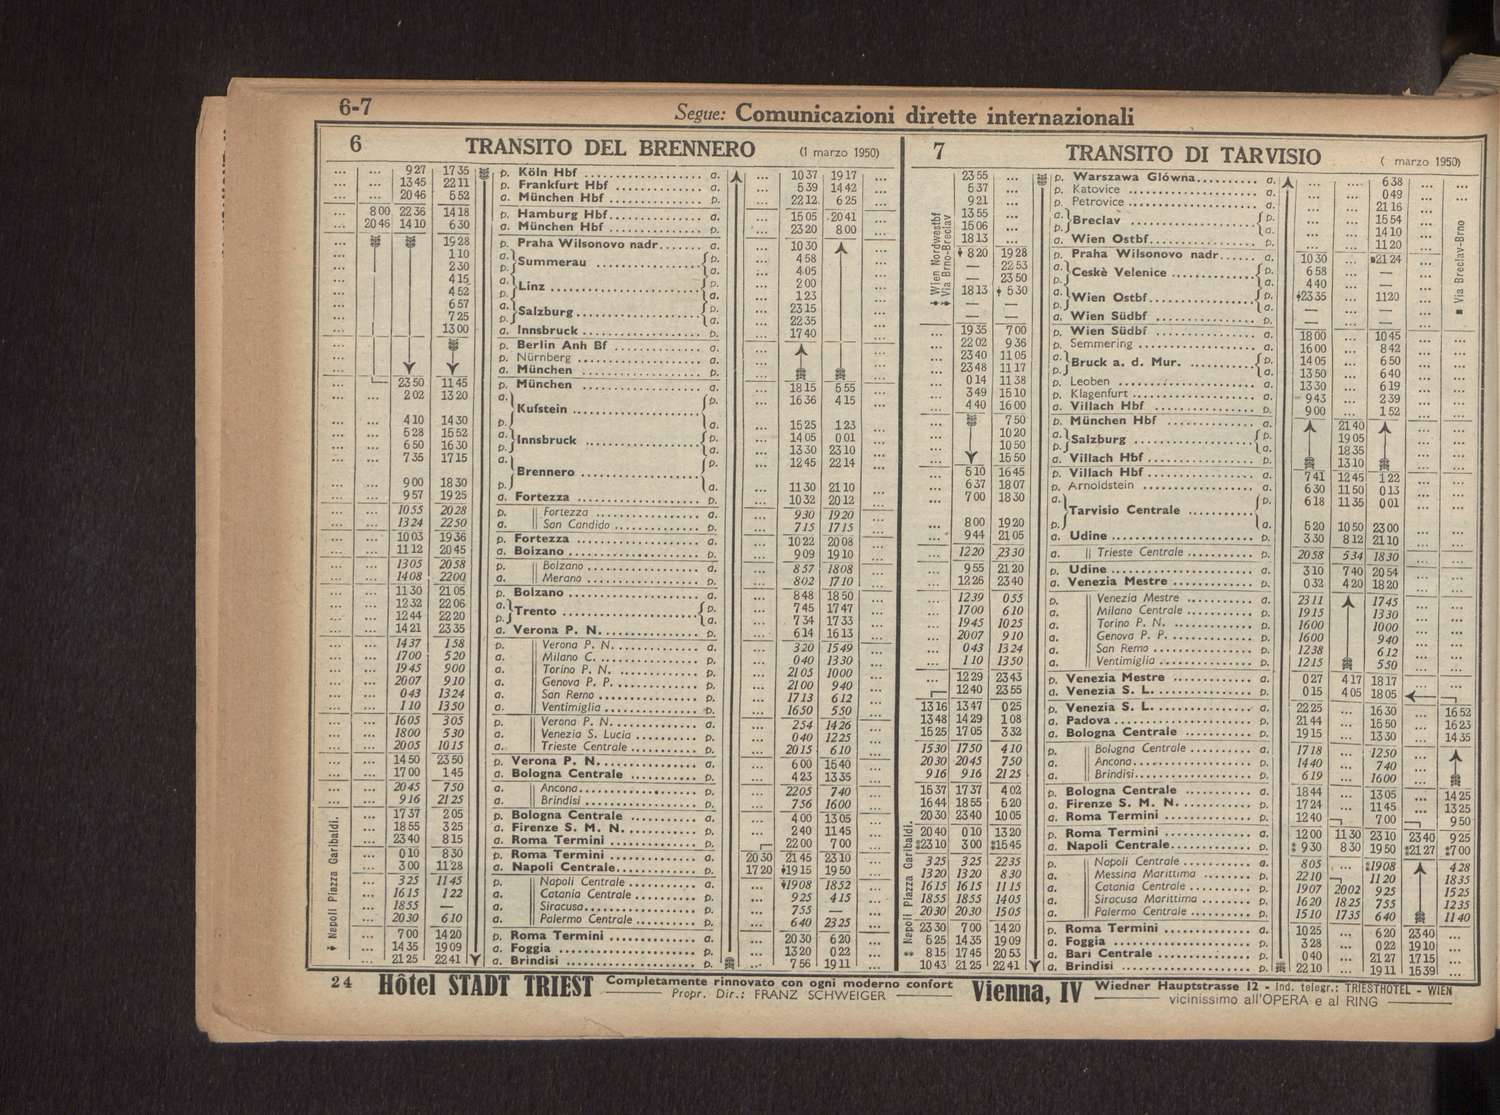 6-7
Segue: Comunicazioni dirette internazionali
6 TRANSITO DEL BRENNERO (1 marzo 1950)
... ... 9 27 17 35 p. Köln Hbf a. ... 10 37 19 17 ...
... ... 13 45 22 11 p. Frankfurt Hbf a. ... 5 39 14 42 ...
... ... 20 46 5 52 a. München Hbf p. ... 22 12 6 25 ...
... 8 00 22 36 14 18 p. Hamburg Hbf a. ... 15 05 20 41 ...
... 20 46 14 10 6 30 a. München Hbf p. ... 23 20 8 00 ...
... 19 28 p. Praha Wilsonovo nadr. a. ... 10 30 ...
... 1 10 a. Summerau p. ... 4 58 ...
... 2 30 p. a. ... 4 05 ...
... 4 15 a. Linz p. ... 2 00 ...
... 4 52 p. a. ... 1 23 ...
... 6 57 a. Salzburg p. ... 23 15 ...
... 7 25 p. a. ... 22 35 ...
... 13 00 a. Innsbruck p. ... 17 40 ...
... p. Berlin Anh Bf a. ...
... p. Nürnberg a. ...
... a. München p. ...
... 23 50 11 45 p. München a. ... 18 15 6 55 ...
... ... 2 02 13 20 a. Kufstein p. ... 16 36 4 15 ...
... ... 4 10 14 30 p. a. ... 15 25 1 23 ...
... ... 5 28 15 52 a. Innsbruck p. ... 14 05 0 01 ...
... ... 6 50 16 30 p. a. ... 13 30 23 10 ...
... ... 7 35 17 15 a. Brennero p. ... 12 45 22 14 ...
... ... 9 00 18 30 p. a. ... 11 30 21 10 ...
... ... 9 57 19 25 a. Fortezza p. ... 10 32 20 12 ...
... ... 10 55 20 28 p. Fortezza a. ... 9 30 19 20 ...
... ... 13 24 22 50 a. San Candido p. ... 7 15 17 15 ...
... ... 10 03 19 36 p. Fortezza a. ... 10 22 20 08 ...
... ... 11 12 20 45 a. Bolzano p. ... 9 09 19 10 ...
... ... 13 05 20 58 p. Bolzano a. ... 8 57 18 08 ...
... ... 14 08 22 00 a. Merano p. ... 8 02 17 10 ...
... ... 11 30 21 05 p. Bolzano a. ... 8 48 18 50 ...
... ... 12 32 22 06 a. Trento p. ... 7 45 17 47 ...
... ... 12 44 22 20 p. a. ... 7 34 17 33 ...
... ... 14 21 23 35 a. Verona P. N. p. ... 6 14 16 13 ...
... ... 14 37 1 58 p. Verona P. N. a. ... 3 20 15 49 ...
... ... 17 00 5 20 a. Milano C. p. ... 0 40 13 30 ...
... ... 19 45 9 00 a. Torino P. N. p. ... 21 05 10 00 ...
... ... 20 07 9 10 a. Genova P. P. p. ... 21 00 9 40 ...
... ... 0 43 13 24 a. San Remo p. ... 17 13 6 12 ...
... ... 1 10 13 50 a. Ventimiglia p. ... 16 50 5 50 ...
... ... 16 05 3 05 p. Verona P. N. a. ... 2 54 14 26 ...
... ... 18 00 5 30 a. Venezia S. Lucia p. ... 0 40 12 25 ...
... ... 20 05 10 15 a. Trieste Centrale p. ... 20 15 6 10 ...
... ... 14 50 23 50 p. Verona P. N. a. ... 6 00 15 40 ...
... ... 17 00 1 45 a. Bologna Centrale p. ... 4 23 13 35 ...
... ... 20 45 7 50 a. Ancona p. ... 22 05 7 40 ...
... ... 9 16 21 25 a. Brindisi p. ... 7 56 16 00 ...
... 17 37 2 05 p. Bologna Centrale a. ... 4 00 13 05 ...
... 18 55 3 25 a. Firenze S. M. N. p. ... 2 40 11 45 ...
... 23 40 8 15 a. Roma Termini p. ... 22 00 7 00 ...
... 0 10 8 30 p. Roma Termini a. 20 30 21 45 23 10 ...
... 3 00 11 28 a. Napoli Centrale p. 17 20 19 15 19 50 ...
... 3 25 11 45 p. Napoli Centrale a. ... 19 08 18 52 ...
... 16 15 1 22 a. Catania Centrale p. ... 9 25 4 15 ...
... 18 55 — a. Siracusa p. ... 7 55 — ...
... 20 30 6 10 a. Palermo Centrale p. ... 6 40 23 25 ...
... 7 00 14 20 p. Roma Termini a. ... 20 30 6 20 ...
... 14 35 19 09 a. Foggia p. ... 13 20 0 22 ...
... 21 25 22 41 a. Brindisi p. ... 7 56 19 11 ...
Napoli Piazza Garibaldi.
7 TRANSITO DI TARVISIO ( marzo 1950)
23 55 ... p. Warszawa Glówna a. ... ... 6 38 ... ...
6 37 ... p. Katovice a. ... ... 0 49 ... ...
9 21 ... p. Petrovice a. ... ... 21 16 ... ...
13 55 ... a. Breclav p. ... ... 15 54 ...
15 06 ... p. a. ... ... 14 10 ...
18 13 ... a. Wien Ostbf p. ... ... 11 20 ...
8 20 19 28 p. Praha Wilsonovo nadr. a. 10 30 ... 21 24 ...
— 22 53 a. Ceskè Velenice p. 6 58 ... — ...
— 23 50 p. a. 4 40 ... — ...
18 13 5 30 a. Wien Ostbf p. 23 35 ... 11 20 ...
— — p. a. — ... — ...
— — a. Wien Südbf p. — ... — ...
... 19 35 7 00 p. Wien Südbf a. 18 00 ... 10 45 ... ...
... 22 02 9 36 p. Semmering a. 16 00 ... 8 42 ... ...
... 23 40 11 05 a. Bruck a. d. Mur. p. 14 05 ... 6 50 ... ...
... 23 48 11 17 p. a. 13 50 ... 6 40 ... ...
... 0 14 11 38 p. Leoben a. 13 30 ... 6 19 ... ...
... 3 49 15 10 p. Klagenfurt a. 9 43 ... 2 39 ... ...
... 4 40 16 00 a. Villach Hbf p. 9 00 ... 1 52 ... ...
... 7 50 p. München Hbf a. 21 40 ... ...
... 10 20 a. Salzburg p. 19 05 ... ...
... 10 50 p. a. 18 35 ... ...
... 15 50 a. Villach Hbf p. 13 10 ... ...
... 5 10 16 45 p. Villach Hbf a. 7 41 12 45 1 22 ... ...
... 6 37 18 07 p. Arnoldstein a. 6 30 11 50 0 13 ... ...
... 7 00 18 30 a. Tarvisio Centrale p. 6 18 11 35 0 01 ... ...
... 8 00 19 20 p. a. 5 20 10 50 23 00 ... ...
... 9 44 21 05 a. Udine p. 3 30 8 12 21 10 ... ...
... 12 20 23 30 a. Trieste Centrale p. 20 58 5 34 18 30 ... ...
... 9 55 21 20 p. Udine a. 3 10 7 40 20 54 ... ...
... 12 26 23 40 a. Venezia Mestre p. 0 32 4 20 18 20 ... ...
... 12 39 0 55 p. Venezia Mestre a. 23 11 17 45 ... ...
... 17 00 6 10 a. Milano Centrale p. 19 15 13 30 ... ...
... 19 45 10 25 a. Torino P. N. p. 16 00 10 00 ... ...
... 20 07 9 10 a. Genova P. P. p. 16 00 9 40 ... ...
... 0 43 13 24 a. San Remo p. 12 38 6 12 ... ...
... 1 10 13 50 a. Ventimiglia p. 12 15 5 50 ... ...
... 12 29 23 43 p. Venezia Mestre a. 0 27 4 17 18 17 ... ...
12 40 23 55 a. Venezia S. L. p. 0 15 4 05 18 05
13 16 13 47 0 25 p. Venezia S. L. a. 22 25 16 30 ... 16 52
13 48 14 29 1 08 a. Padova p. 21 44 ... 15 50 ... 16 23
15 25 17 05 3 32 a. Bologna Centrale p. 19 15 ... 13 30 ... 14 35
15 30 17 50 4 10 p. Bologna Centrale a. 17 18 ... 12 50 ...
20 30 20 45 7 50 a. Ancona p. 14 40 ... 7 40 ...
9 16 9 16 21 25 a. Brindisi p. 6 19 ... 16 00 ...
15 37 17 37 4 02 p. Bologna Centrale a. 18 44 ... 13 05 ... 14 25
16 44 18 55 5 20 a. Firenze S. M. N. p. 17 24 ... 11 45 ... 13 25
20 30 23 40 10 05 a. Roma Termini p. 12 40 7 00 9 50
20 40 0 10 13 20 p. Roma Termini a. 12 00 11 30 23 10 23 40 9 25
23 10 3 00 15 45 a. Napoli Centrale p. 9 30 8 30 19 50 21 27 7 00
3 25 3 25 22 35 p. Napoli Centrale a. 8 05 ... 19 08 4 28
13 20 13 20 8 30 a. Messina Marittima p. 22 10 11 20 18 35
16 15 16 15 11 15 a. Catania Centrale p. 19 07 20 02 9 25 15 25
18 55 18 55 14 05 a. Siracusa Marittima p. 16 20 18 25 7 55 12 35
20 30 20 30 15 05 a. Palermo Centrale p. 15 10 17 35 6 40 11 40
23 30 7 00 14 20 p. Roma Termini a. 10 25 ... 6 20 23 40 ...
5 25 14 35 19 09 a. Foggia p. 3 28 ... 0 22 19 10 ...
8 15 17 45 20 53 a. Bari Centrale p. 0 40 ... 21 27 17 15 ...
10 43 21 25 22 41 a. Brindisi p. 22 10 ... 19 11 15 39 ...
Wien Nordwestbf
Via Brno-Breclav
Via Breclav-Brno
Napoli Piazza Garibaldi.
24 Hôtel STADT TRIEST Completamente rinnovato con ogni moderno confort Vienna, IV Wiedner Hauptstrasse 12 - Ind. telegr.: TRIESTHOTEL - WIEN
Propr. Dir.: FRANZ SCHWEIGER vicinissimo all'OPERA e al RING